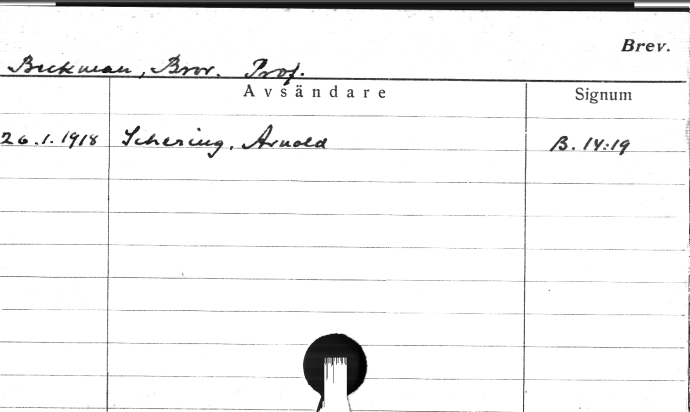 Brev.
Beckman, Bror. Prof.
Avsändare Signum
26.1.1918 Schering, Arnold B. 14:19